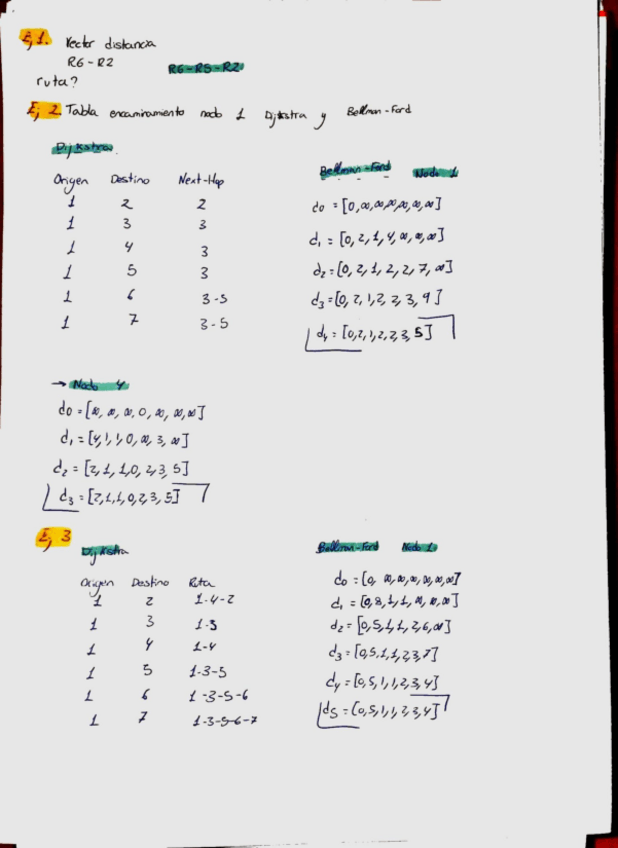 Ej 1. Vector distancia
R6-R2 R6-R5-R2
ruta?
Ej 2. Tabla encaminamiento nodo 1 Dijkstra y Bellman-Ford
Dijkstra
Origen Destino Next-Hop
1 2 2
1 3 3
1 4 3
1 5 3
1 6 3-5
1 7 3-5
Bellman-Ford Nodo 1
d0 = [0,∞,∞,∞,∞,∞,∞]
d1 = [0,2,1,4,∞,∞,∞]
d2 = [0,2,1,2,2,7,∞]
d3 = [0,2,1,2,2,3,9]
d4 = [0,2,1,2,2,3,5]
→ Nodo 4
d0 = [∞,∞,∞,0,∞,∞,∞]
d1 = [4,1,1,0,∞,3,∞]
d2 = [2,1,1,0,2,3,5]
d3 = [2,1,1,0,2,3,5]
Ej 3
Dijkstra
Origen Destino Ruta
1 2 1-4-2
1 3 1-3
1 4 1-4
1 5 1-3-5
1 6 1-3-5-6
1 7 1-3-5-6-7
Bellman-Ford Nodo 1
d0 = [0,∞,∞,∞,∞,∞,∞]
d1 = [0,8,1,1,∞,∞,∞]
d2 = [0,5,1,1,2,6,∞]
d3 = [0,5,1,1,2,3,7]
d4 = [0,5,1,1,2,3,4]
d5 = [0,5,1,1,2,3,4]